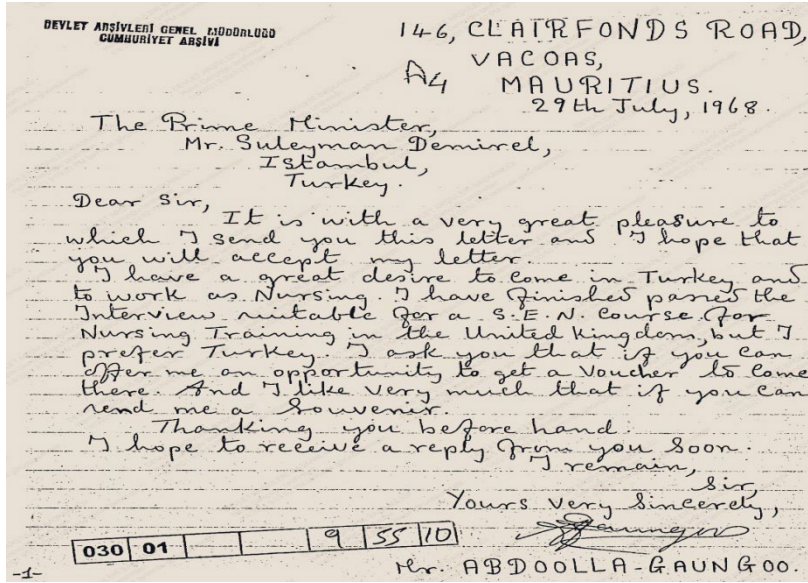 DEVLET ARŞİVLERİ GENEL MÜDÜRLÜĞÜ
CUMHURİYET ARŞİVİ
146, CLAIRFONDS ROAD,
VACOAS,
A4
MAURITIUS.
29th July, 1968.
The Prime Minister,
Mr. Suleyman Demirel,
Istambul,
Turkey.
Dear Sir,
It is with a very great pleasure to
which I send you this letter and I hope that
you will accept my letter.
I have a great desire to come in Turkey and
to work as Nursing. I have finished passed the
Interview suitable for a S.E.N. Course for
Nursing Training in the United Kingdom, but I
prefer Turkey. I ask you that if you can
offer me an opportunity to get a Voucher to come
there. And I like very much that if you can
send me a Souvenir.
Thanking you before hand.
I hope to receive a reply from you soon.
I remain,
Sir,
Yours very Sincerely,
030 01 9 55 10
-1-
Mr. ABDOOLLA-GAUNGOO.